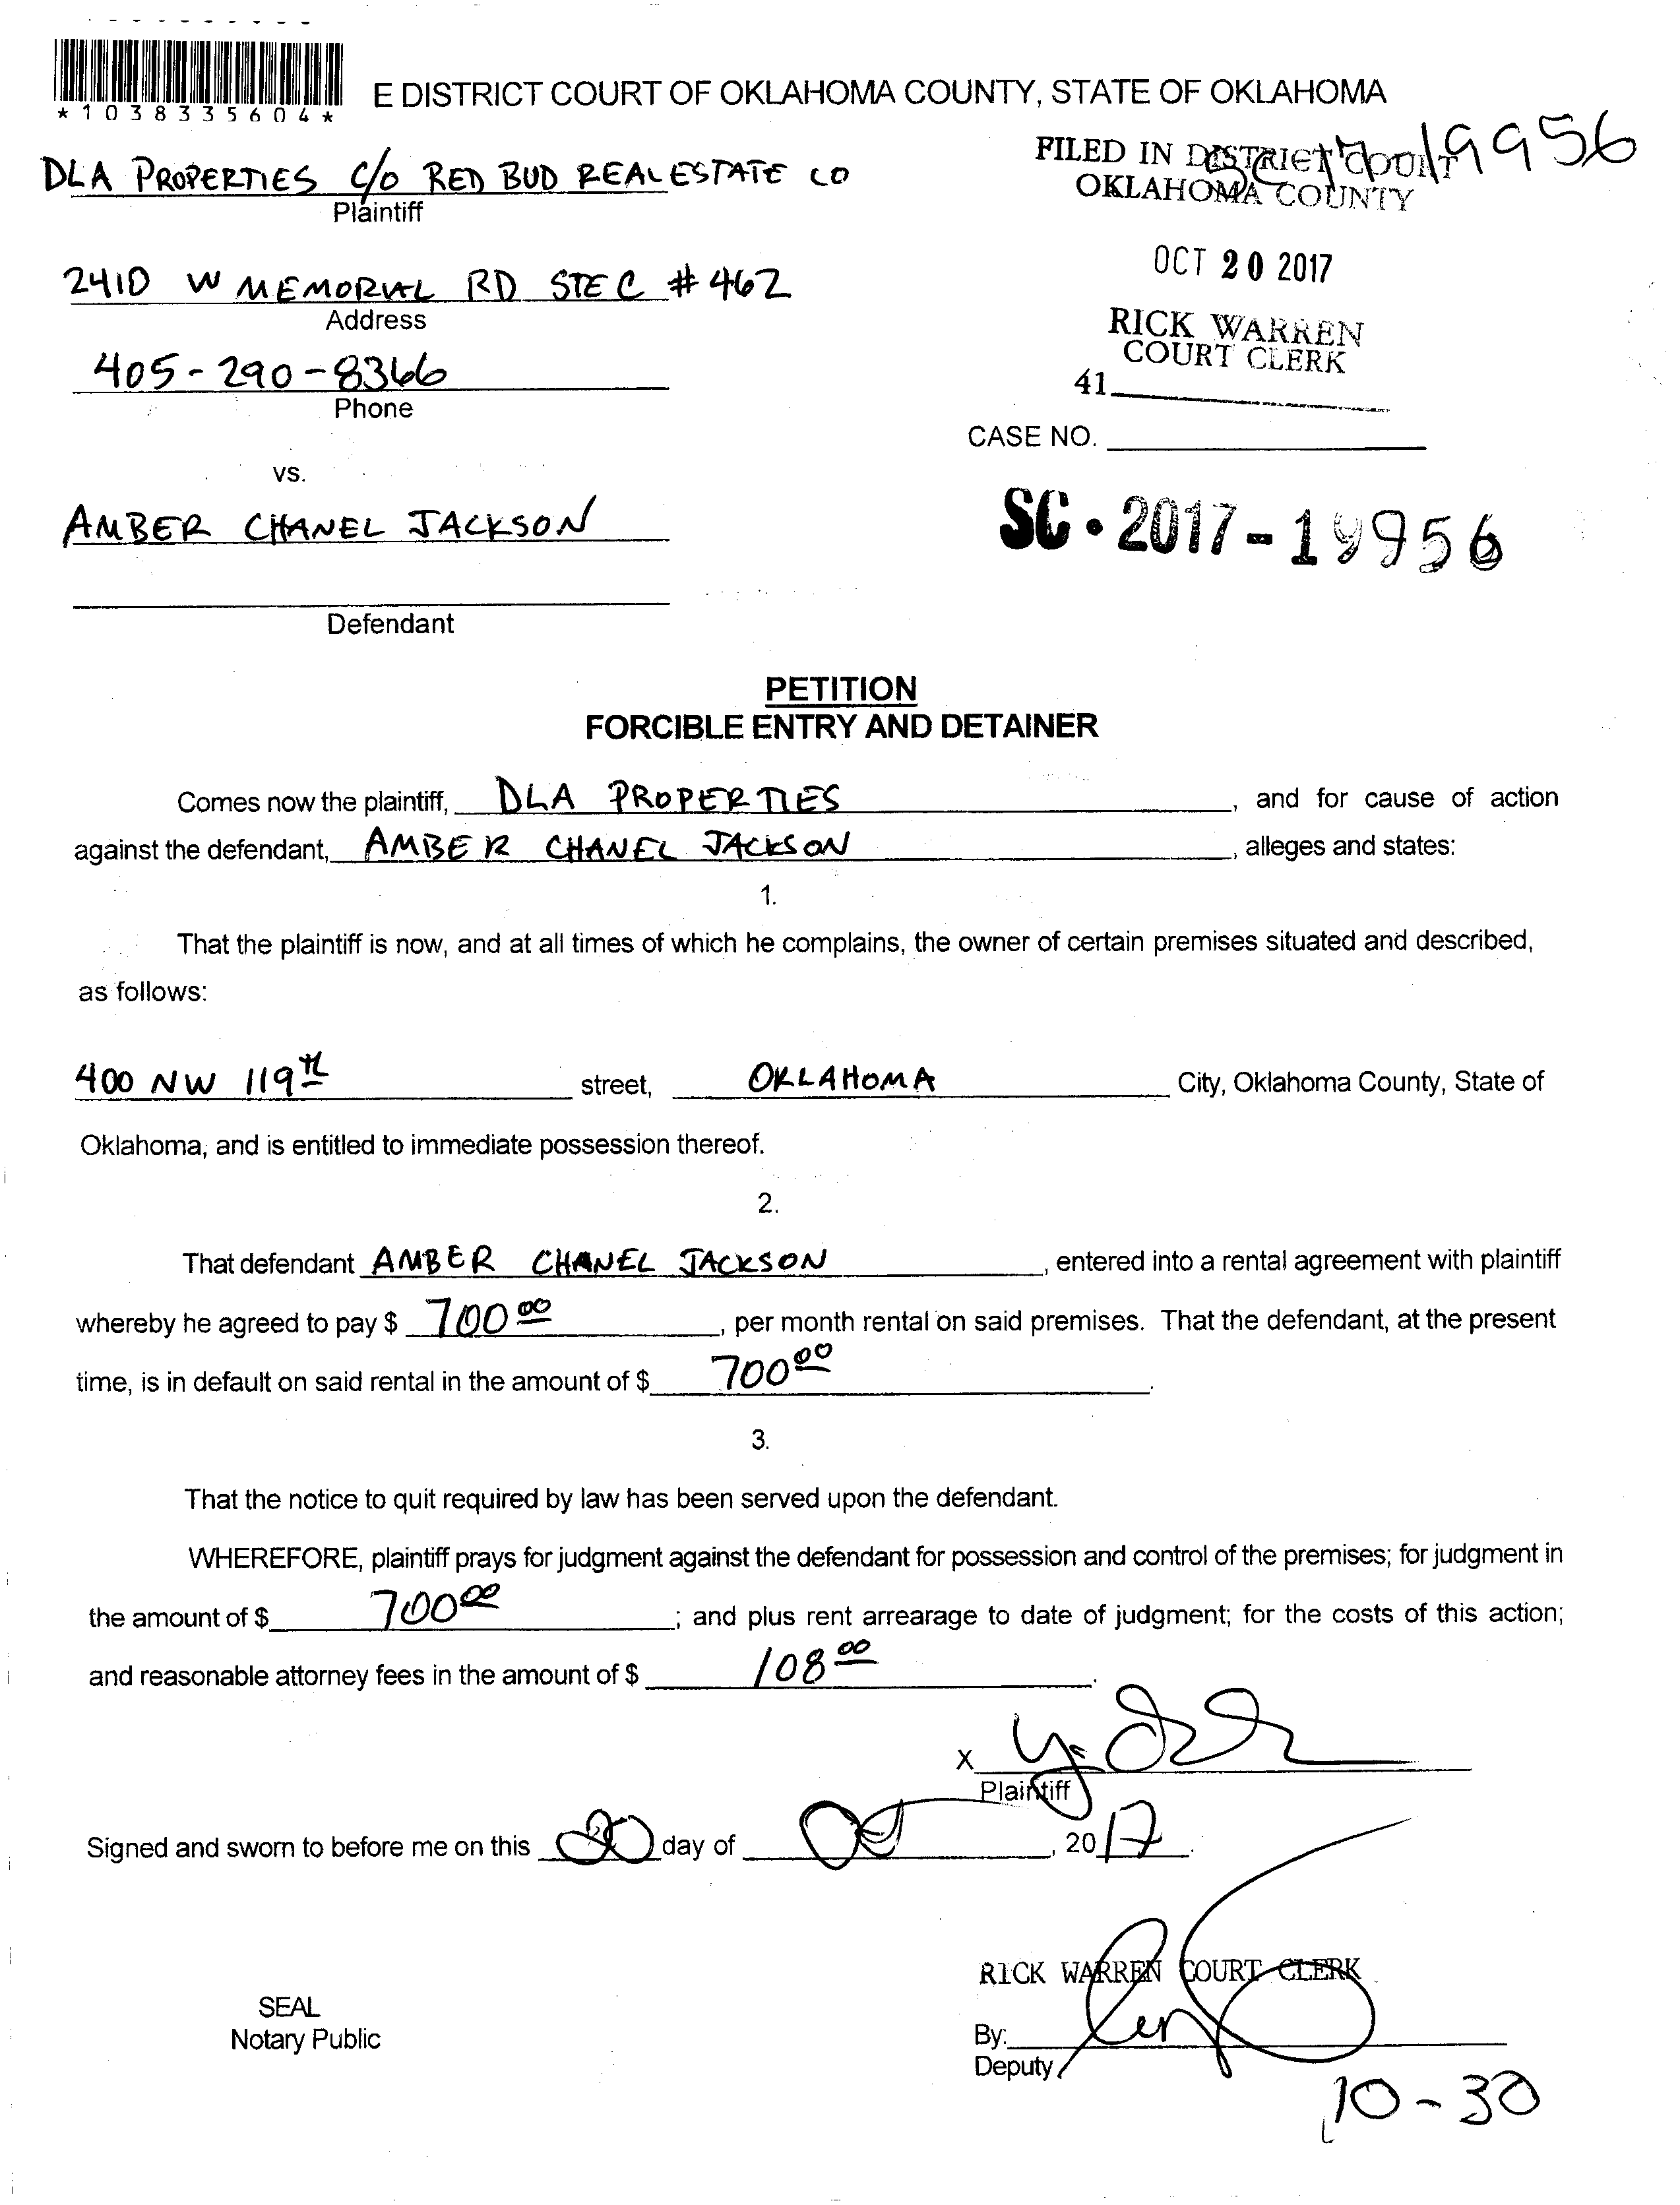 *1038335604*
E DISTRICT COURT OF OKLAHOMA COUNTY, STATE OF OKLAHOMA
DLA PROPERTIES C/O RED BUD REAL ESTATE CO
Plaintiff
FILED IN DISTRICT COURT
OKLAHOMA COUNTY
SC17-19956
2410 W MEMORIAL RD STE C #462
Address
OCT 20 2017
405-290-8366
Phone
RICK WARREN
COURT CLERK
41
CASE NO.
vs.
AMBER CHANEL JACKSON
SC-2017-19956
Defendant
PETITION
FORCIBLE ENTRY AND DETAINER
Comes now the plaintiff, DLA PROPERTIES, and for cause of action
against the defendant, AMBER CHANEL JACKSON, alleges and states:
1.
That the plaintiff is now, and at all times of which he complains, the owner of certain premises situated and described,
as follows:
400 NW 119th street, OKLAHOMA City, Oklahoma County, State of
Oklahoma, and is entitled to immediate possession thereof.
2.
That defendant AMBER CHANEL JACKSON, entered into a rental agreement with plaintiff
whereby he agreed to pay $ 700 00, per month rental on said premises. That the defendant, at the present
time, is in default on said rental in the amount of $ 700 00.
3.
That the notice to quit required by law has been served upon the defendant.
WHEREFORE, plaintiff prays for judgment against the defendant for possession and control of the premises; for judgment in
the amount of $ 700 00; and plus rent arrearage to date of judgment; for the costs of this action;
and reasonable attorney fees in the amount of $ 108 00.
X
Plaintiff
Signed and sworn to before me on this 20 day of , 2017.
RICK WARREN COURT CLERK
SEAL
Notary Public
By:
Deputy
10-30